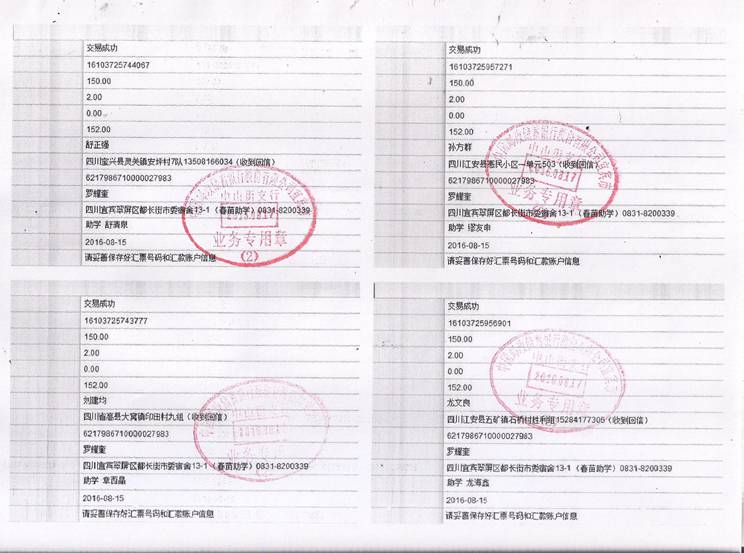 交易成功
16103725744067
150.00
2.00
0.00
152.00
舒正强
四川宝兴县灵关镇安坪村7队13508166034（收到回信）
6217986710000027983
罗耀奎
四川宜宾翠屏区都长街市委宿舍13-1（春苗助学）0831-8200339
助学 舒清泉
2016-08-15
请妥善保存好汇票号码和汇款账户信息
中山街支行
2016.0817
业务专用章
(2)
交易成功
16103725957271
150.00
2.00
0.00
152.00
孙方群
四川江安县惠民小区一单元503（收到回信）
6217986710000027983
罗耀奎
四川宜宾翠屏区都长街市委宿舍13-1（春苗助学）0831-8200339
助学 缪友申
2016-08-15
请妥善保存好汇票号码和汇款账户信息
中山街支行
2016.0817
业务专用章
交易成功
16103725743777
150.00
2.00
0.00
152.00
刘建均
四川省高县大窝镇印田村九组（收到回信）
6217986710000027983
罗耀奎
四川宜宾翠屏区都长街市委宿舍13-1（春苗助学）0831-8200339
助学 章百晶
2016-08-15
请妥善保存好汇票号码和汇款账户信息
交易成功
16103725956901
150.00
2.00
0.00
152.00
龙文良
四川江安县五矿镇石桥村胜利组15284177306（收到回信）
6217986710000027983
罗耀奎
四川宜宾翠屏区都长街市委宿舍13-1（春苗助学）0831-8200339
助学 龙海鑫
2016-08-15
请妥善保存好汇票号码和汇款账户信息
中山街支行
2016.0817
业务专用章